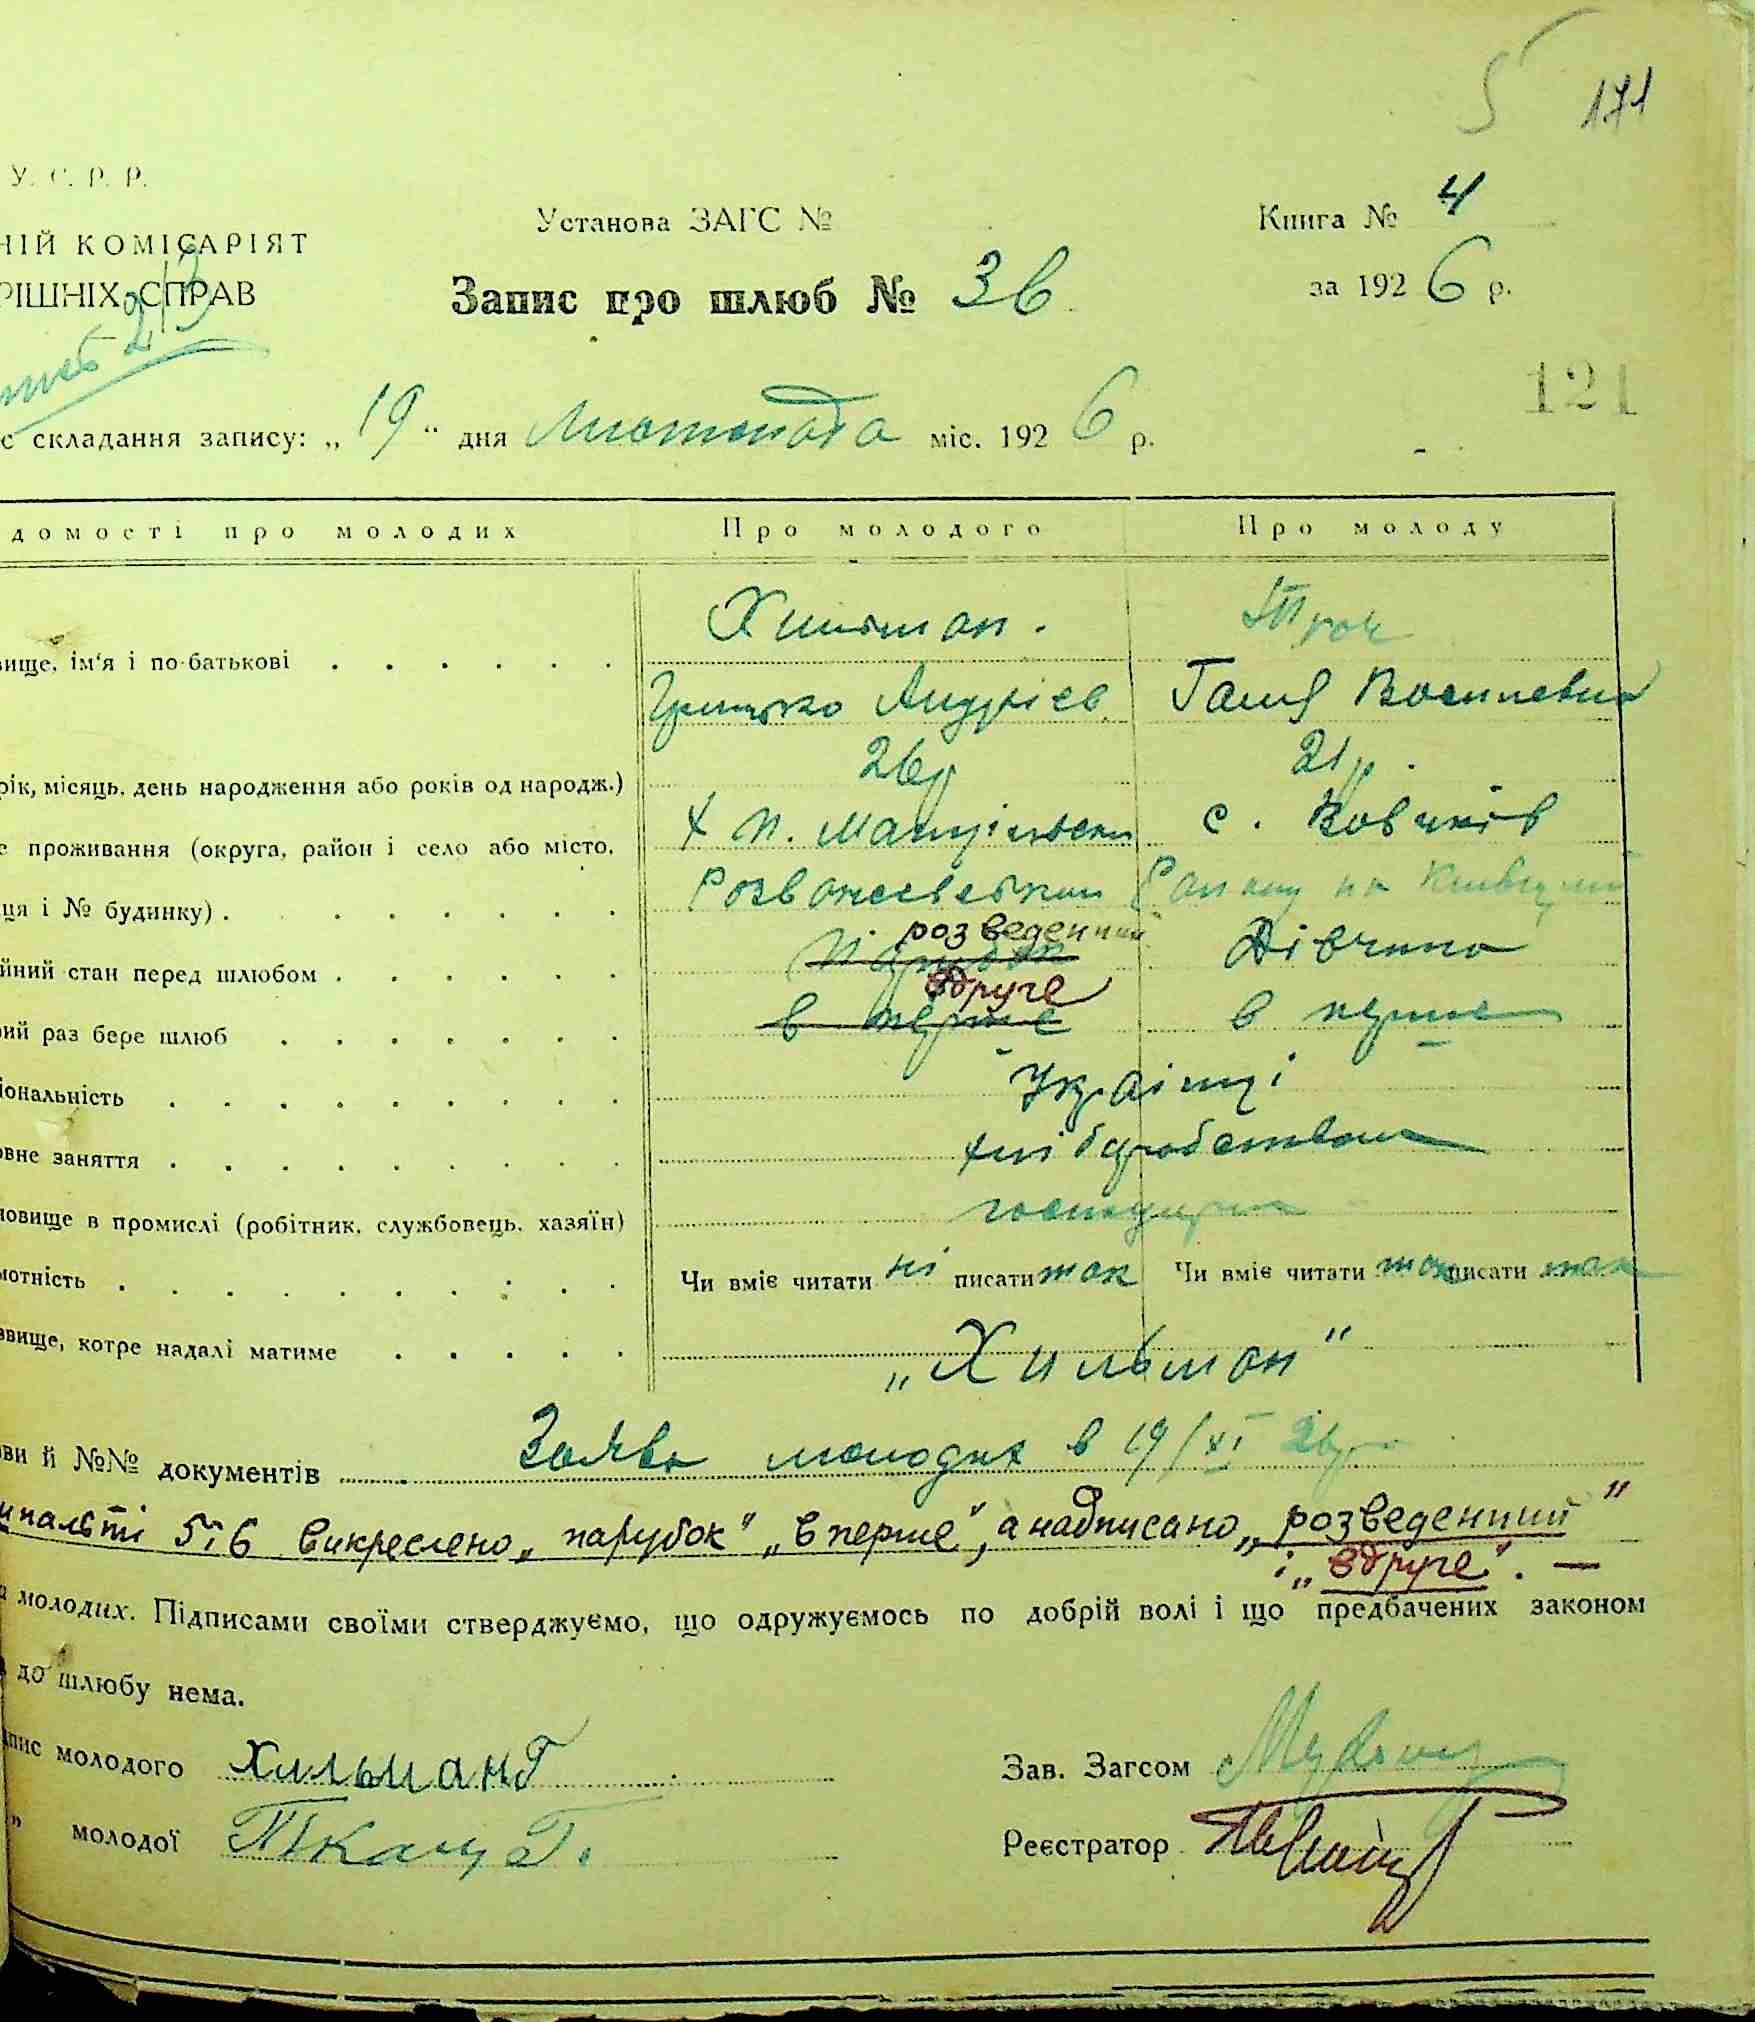 171
У. С. Р. Р.
НІЙ КОМІСАРІЯТ
РІШНІХ СПРАВ
Установа ЗАГС №
Книга № 4
Запис про шлюб № 36
за 1926 р.
121
с складання запису: „19“ дня Листопада міс. 1926 р.
домості про молодих Про молодого Про молоду
Хильман.
вище, ім‘я і по-батькові
Грицько Андріев Ганя Василевна
26р 21р.
рік, місяць, день народження або років од народж.)
х п. с. Вовчків
є проживання (округа, район і село або місто,
Розважевський
ця і № будинку)
розведенний
парубок Дівчина
йний стан перед шлюбом
вдруге
в перше в перше
рий раз бере шлюб
Українці
іональність
хліборобство
овне заняття
господарі
новище в промислі (робітник, службовець, хазяїн)
мотність Чи вміє читати ні писати так Чи вміє читати так писати так
звище, котре надалі матиме „Хильман“
ови й №№ документів Заява молодих в 19/XI 26р
5 і 6 викреслено „парубок“ „в перше“, а надписано „розведенний“
і „вдруге“. —
а молодих. Підписами своїми стверджуємо, що одружуємось по добрій волі і що предбачених законом
до шлюбу нема.
дпис молодого Хильман Г Зав. Загсом
„ молодої Ткач Г. Реєстратор